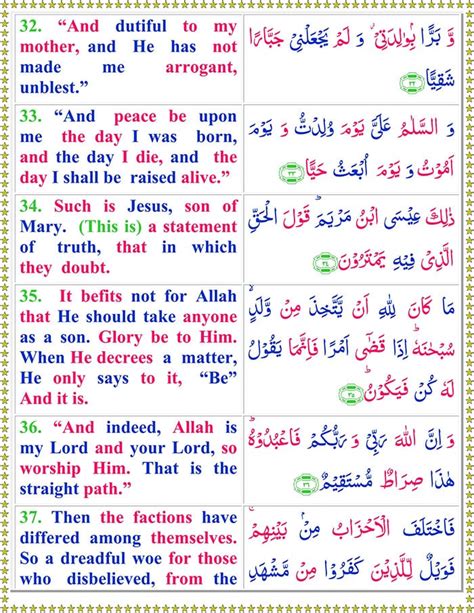 32. “And dutiful to my
mother, and He has not
made me arrogant,
unblest.”
وَّ بَرًّۢا بِوَالِدَتِيْ ۫ وَ لَمْ يَجْعَلْنِيْ جَبَّارًا
شَقِيًّا ۝۳۲
33. “And peace be upon
me the day I was born,
and the day I die, and the
day I shall be raised alive.”
وَ السَّلٰمُ عَلَيَّ يَوْمَ وُلِدْتُّ وَ يَوْمَ
اَمُوْتُ وَ يَوْمَ اُبْعَثُ حَيًّا ۝۳۳
34. Such is Jesus, son of
Mary. (This is) a statement
of truth, that in which
they doubt.
ذٰلِكَ عِيْسَى ابْنُ مَرْيَمَ ۚ قَوْلَ الْحَقِّ
الَّذِيْ فِيْهِ يَمْتَرُوْنَ ۝۳۴
35. It befits not for Allah
that He should take anyone
as a son. Glory be to Him.
When He decrees a matter,
He only says to it, “Be”
And it is.
مَا كَانَ لِلّٰهِ اَنْ يَّتَّخِذَ مِنْ وَّلَدٍ ۙ
سُبْحٰنَهٗ ؕ اِذَا قَضٰۤى اَمْرًا فَاِنَّمَا يَقُوْلُ
لَهٗ كُنْ فَيَكُوْنُ ؕ ۝۳۵
36. “And indeed, Allah is
my Lord and your Lord, so
worship Him. That is the
straight path.”
وَ اِنَّ اللّٰهَ رَبِّيْ وَ رَبُّكُمْ فَاعْبُدُوْهُ ؕ
هٰذَا صِرَاطٌ مُّسْتَقِيْمٌ ۝۳۶
37. Then the factions have
differed among themselves.
So a dreadful woe for those
who disbelieved, from the
فَاخْتَلَفَ الْاَحْزَابُ مِنْۢ بَيْنِهِمْ ۚ
فَوَيْلٌ لِّلَّذِيْنَ كَفَرُوْا مِنْ مَّشْهَدِ